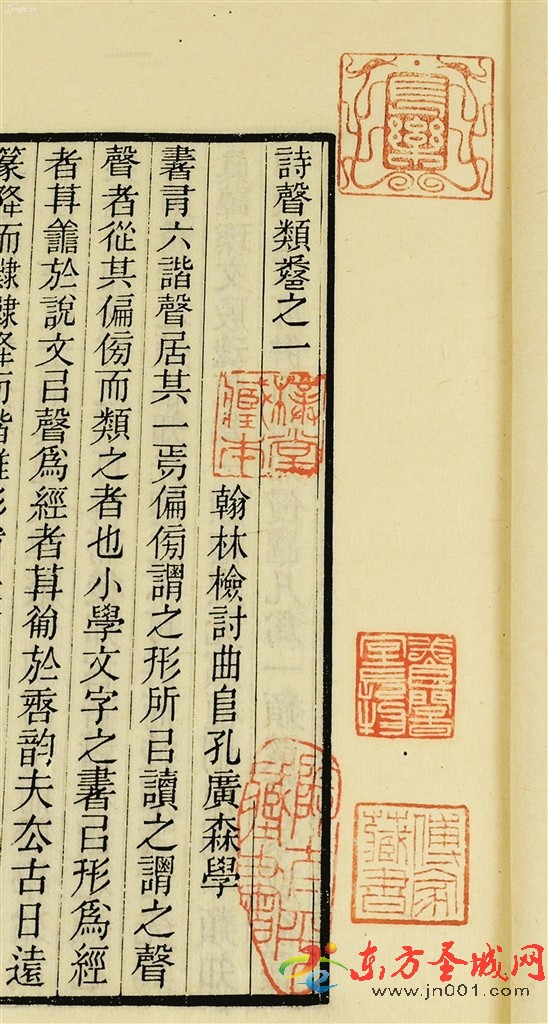 詩聲類卷之一
翰林檢討曲𨸏孔廣森學
書有六諧聲居其一焉偏㑂謂之形所㠯讀之謂之聲
聲者從其偏㑂而類之者也小學文字之書㠯形爲經
者莫譱於說文㠯聲爲經者莫備於唐韵夫去古日遠
篆降而隸隸降而楷
樸堂藏本
傅氏藏書
东方圣城网
www.jn001.com